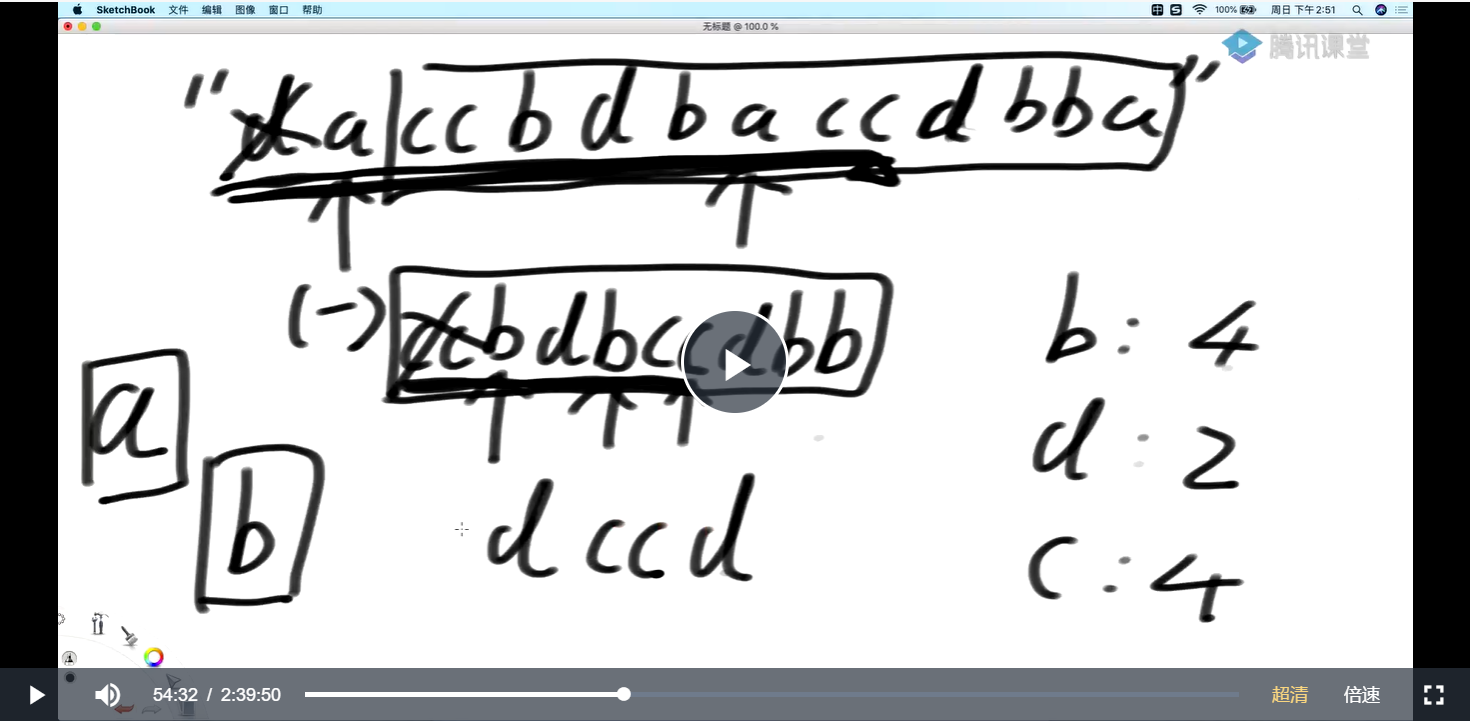 SketchBook 文件 编辑 图像 窗口 帮助 100% 周日 下午2:51
无标题 @ 100.0 %
腾讯课堂
"daccbdbaccdbba"
(一) ccbdbccdbb
b : 4
a
d : 2
b
dccd
c : 4
54:32 / 2:39:50 超清 倍速